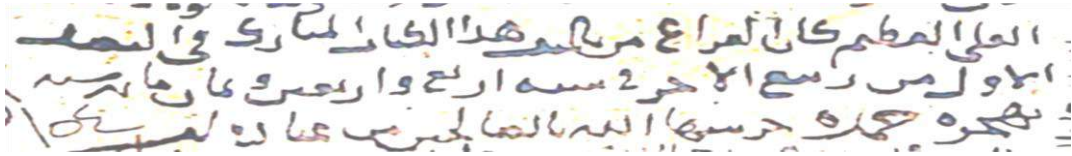 العلي العظيم كان الفراغ من تاليف هذا الكتاب المبارك في النصف
الاول من ربيع الاخر سنه اربع واربعين وثمان مايه
بصخره حماه حرسها الله بالصالحين من عباده